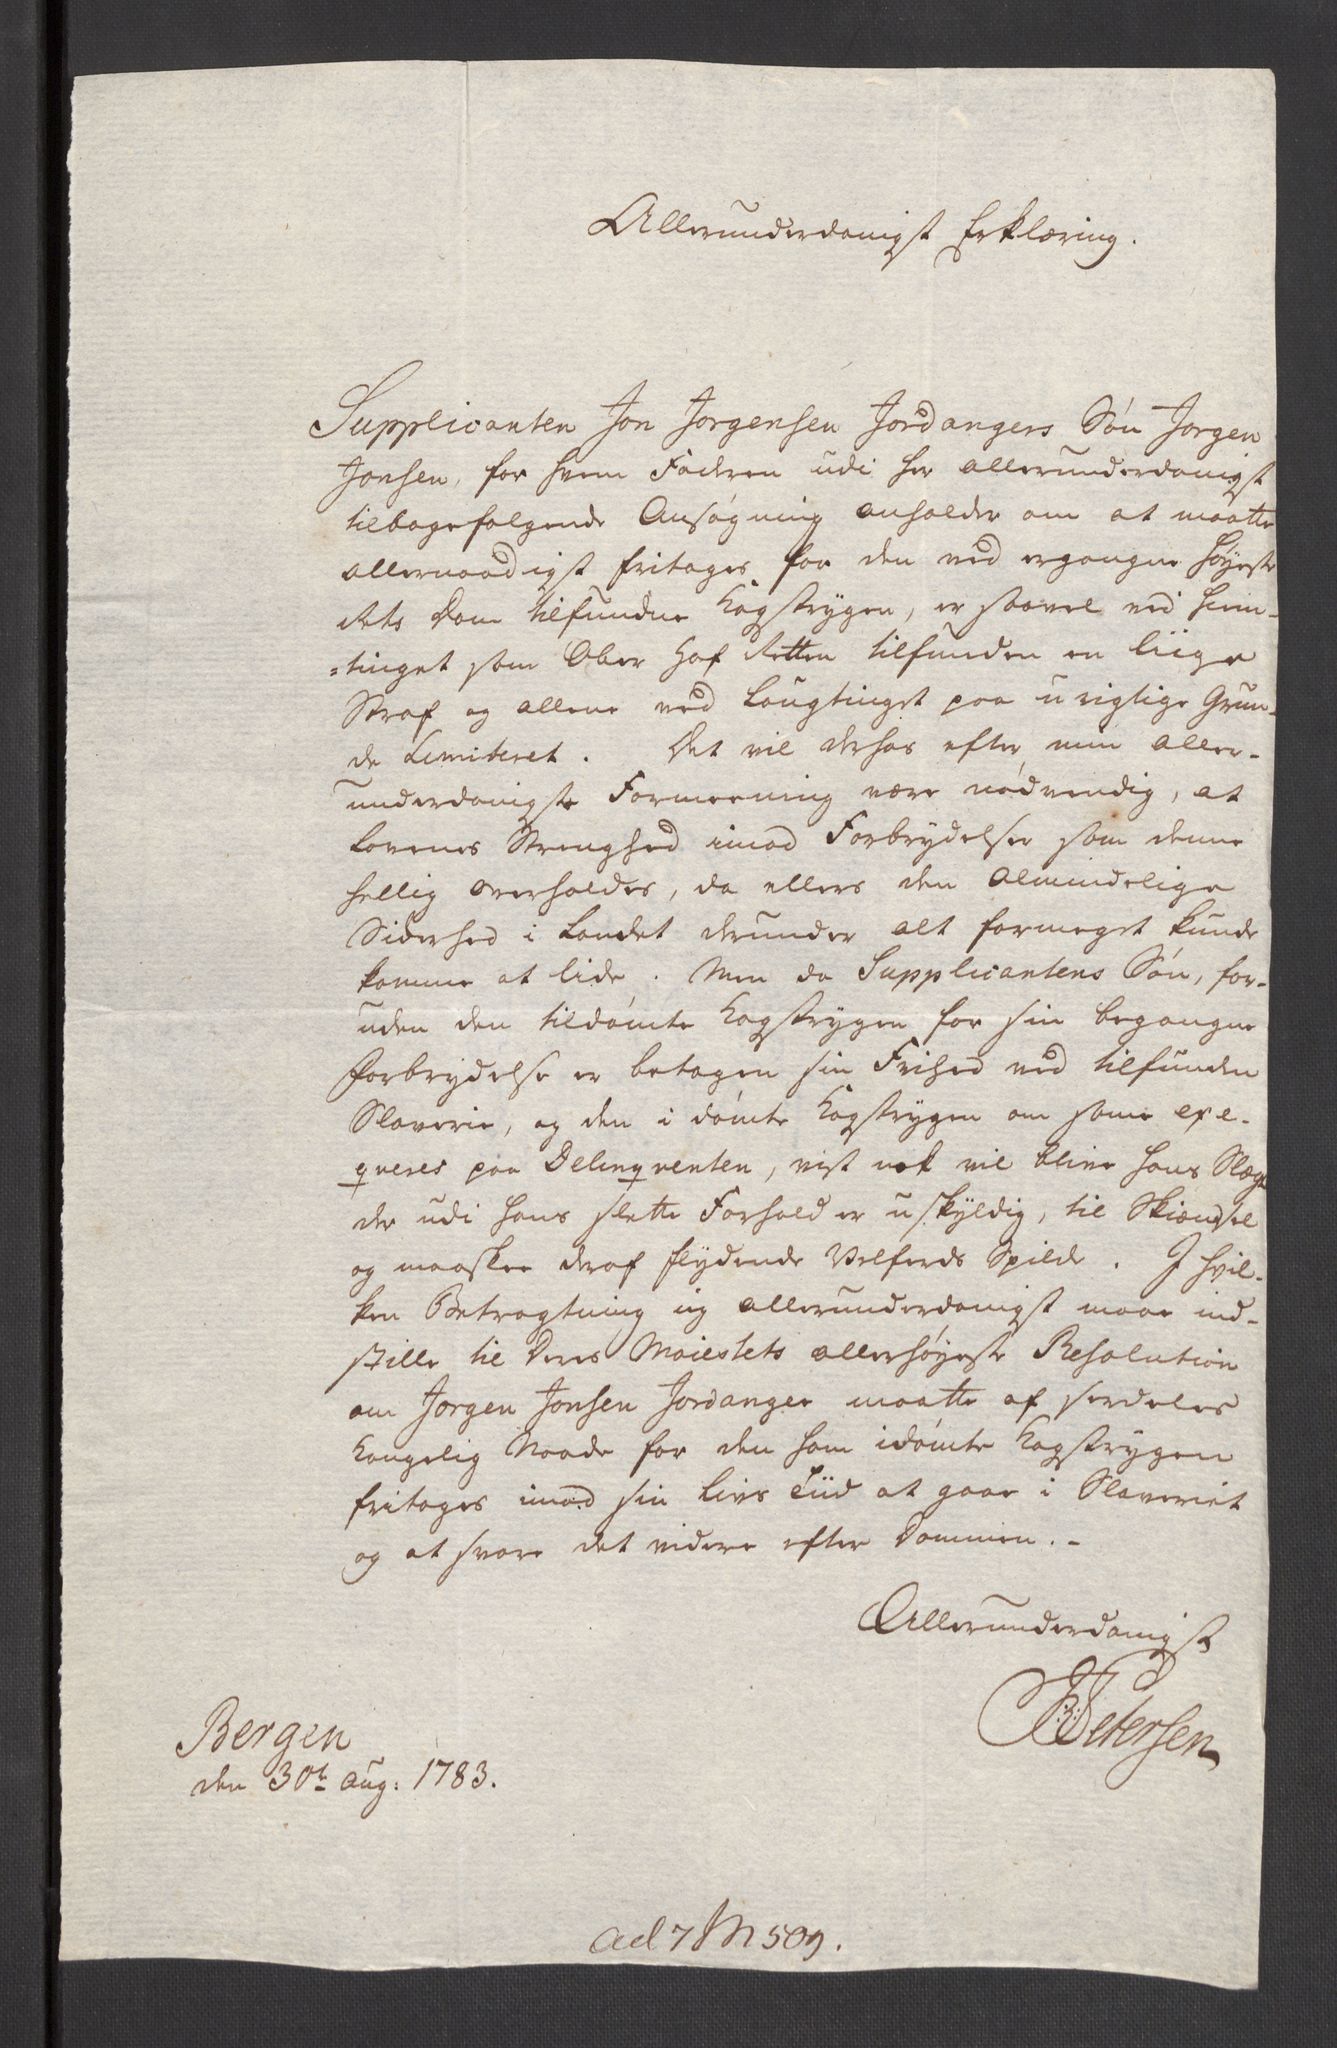 Allerunderdanigst Erklæring.
Supplicanten Jon Jorgensen Jordangers Søn Jorgen
Jonsen, for hvem Faderen udi her allerunderdanigst
tilbagefølgende Ansøgning anholder om at maatte
allernaadigst fritages for den ved ergangne Høyeste
Rets Dom tilfundne Kagstrygen, er saavel ved Hiem-
=tinget som Ober Hof Retten tilfunden en liige
Straf og allene ved Laugtinget paa urigtige Grun-
de Limiteret. Det vil derhos efter min aller-
underdanigste Formeening være nødvendig, at
Lovenes Strenghed imod Forbrydelser som denne
hellig overholdes, da ellers den almindelige
Sickerhed i Landet derunder alt formeget kunde
komme at lide. Men da Supplicantens Søn, for-
uden den tildømte Kagstrygen for sin begangne
Forbrydelse er betagen sin Frihed ved tilfunden
Slaverie, og den idømte Kagstrygen om samme exe-
qveres paa Delinqventen, vist nok vil blive hans Slægt
der udi hans slette Forhold er uskyldig, til Skiændsel
og maaskee deraf flydende Velferds Spilde. I hvil-
ken Betragtning ieg allerunderdanigst maae ind-
stille til Deres Maiestets allerhøyeste Resolution
om Jorgen Jonsen Jordanger maatte af serdeles
Kongelig Naade for den ham idømte Kagstrygen
fritages imod sin Livs Tiid at gaae i Slaveriet
og at svare det videre efter Dommen.-
Allerunderdanigst
Petersen
Bergen
den 30te Aug: 1783.
ad 7 M 509.